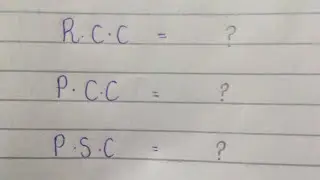 R.C.C = ?
P.C.C = ?
P.S.C = ?